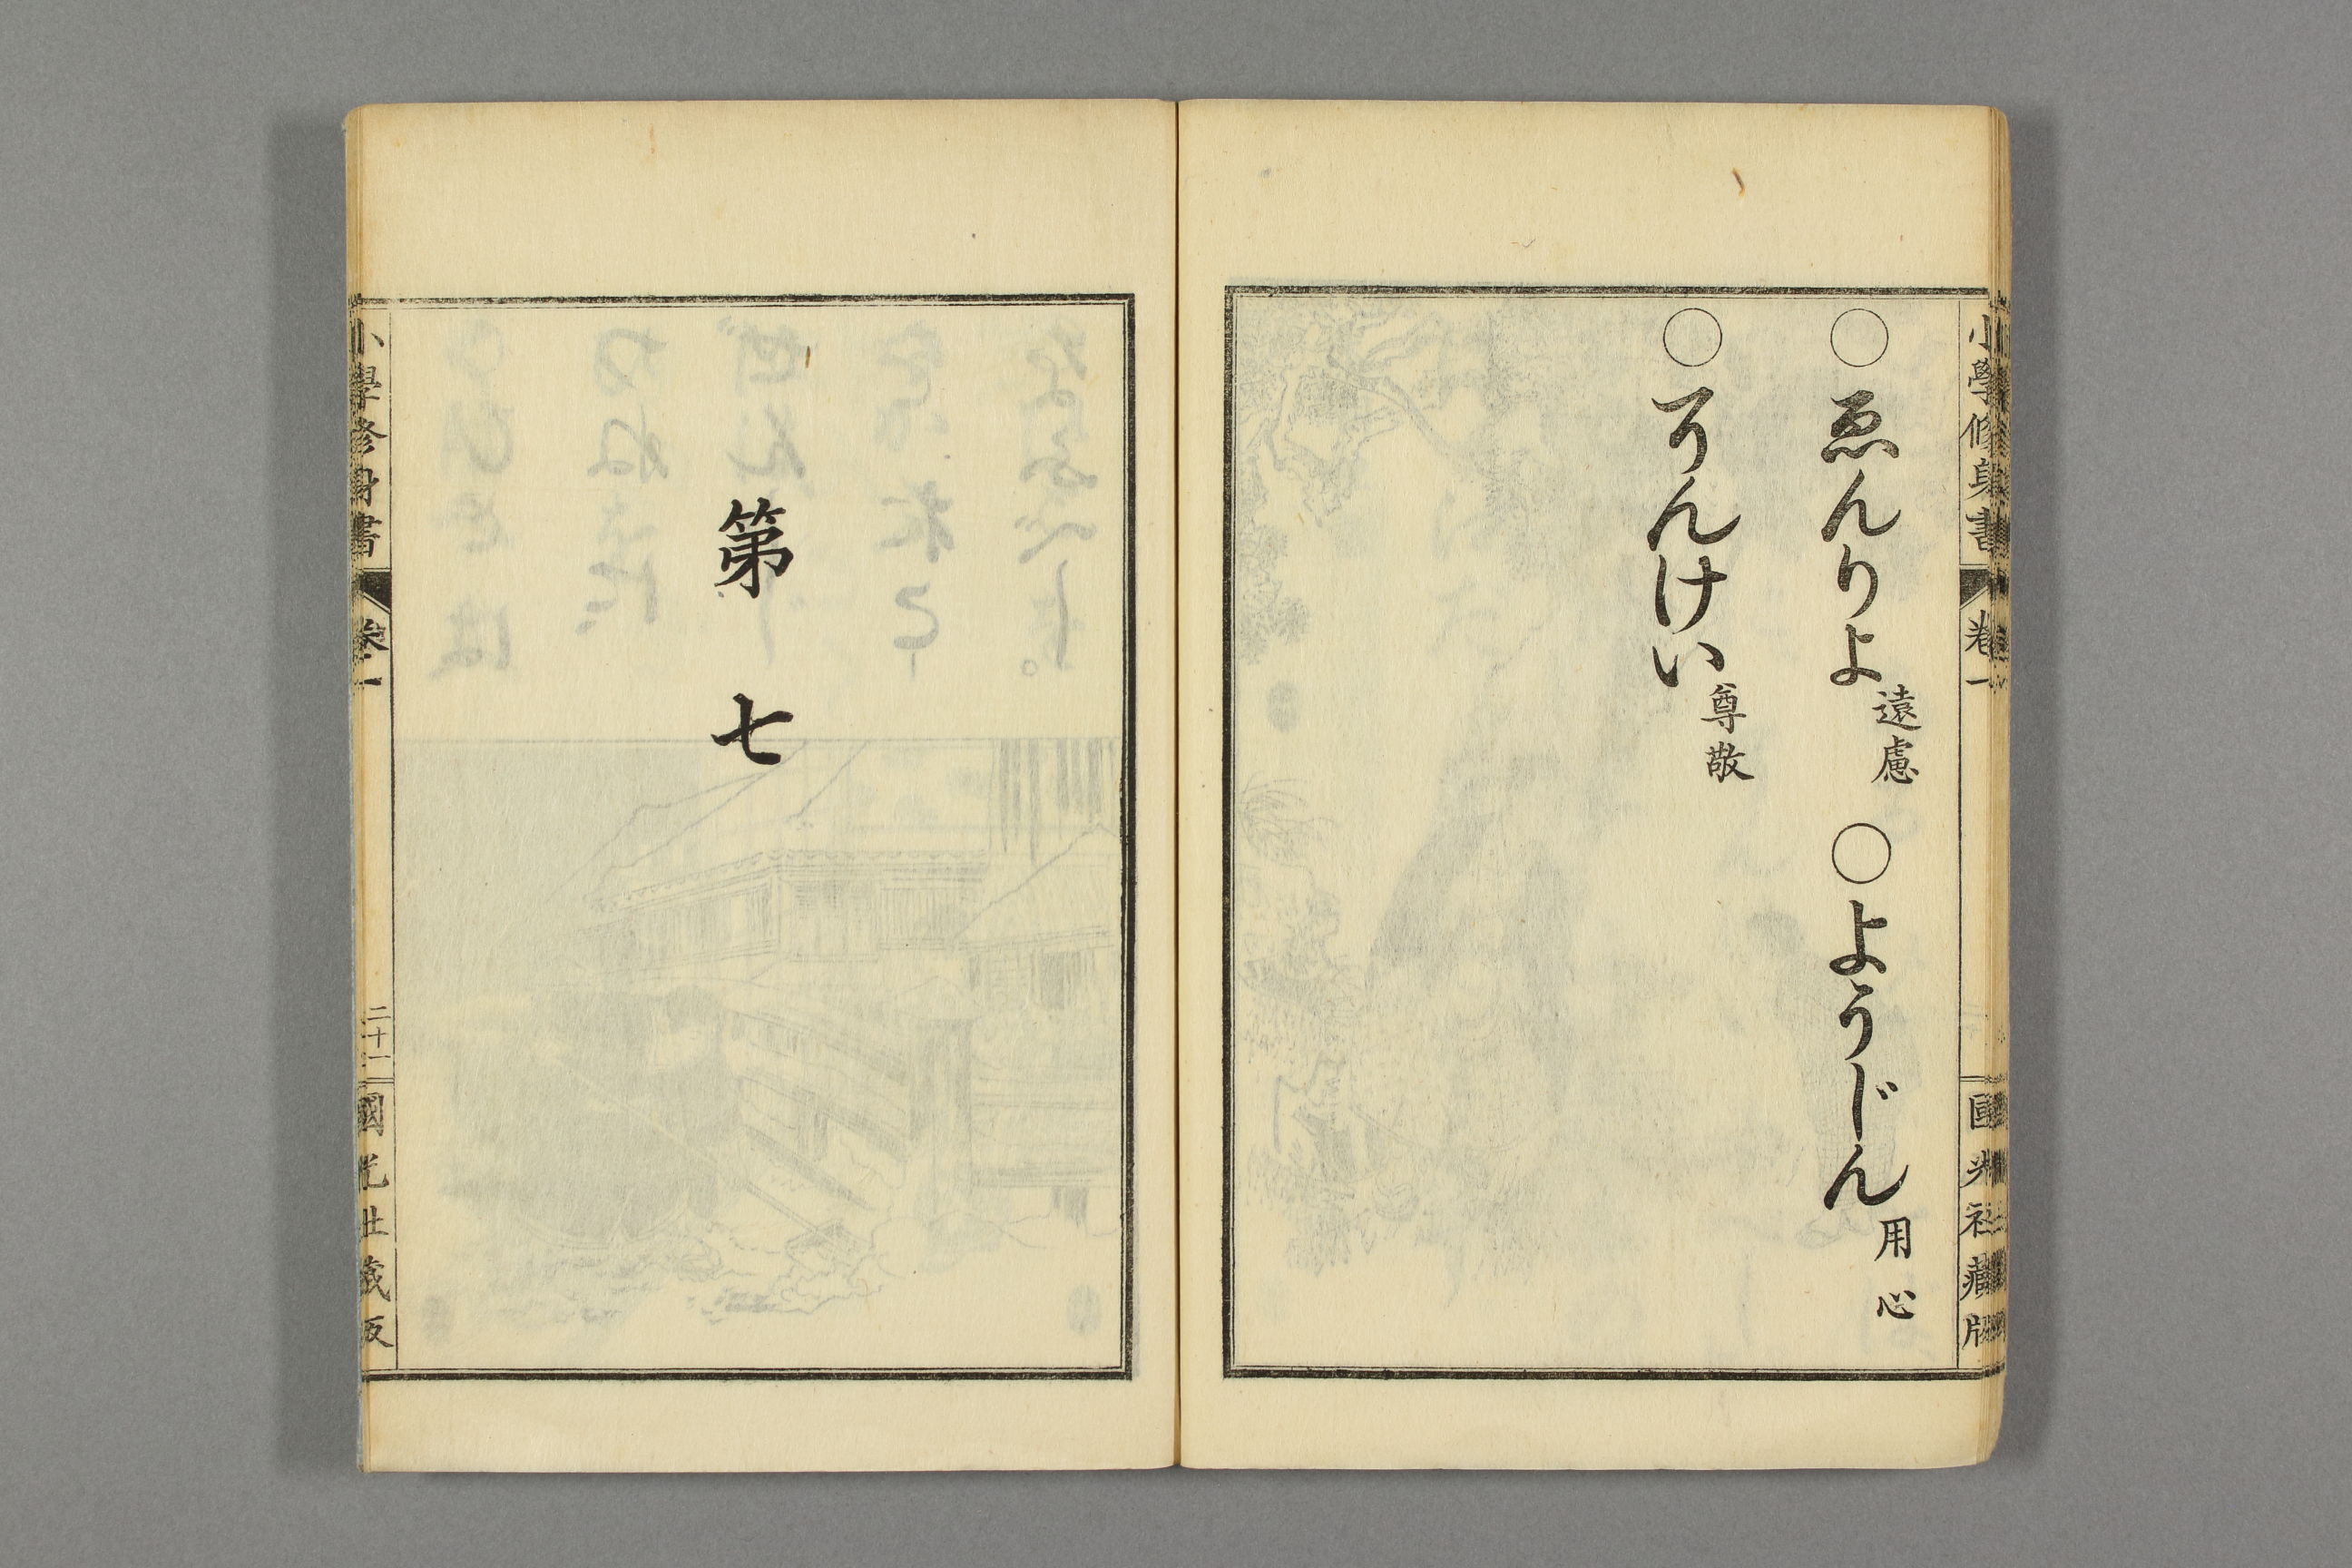 小學修身書
卷一
國光社藏版
○ゑんりよ遠慮 ○ようじん用心
○そんけい尊敬
第七
小學修身書
卷一
二十一
國光社藏版